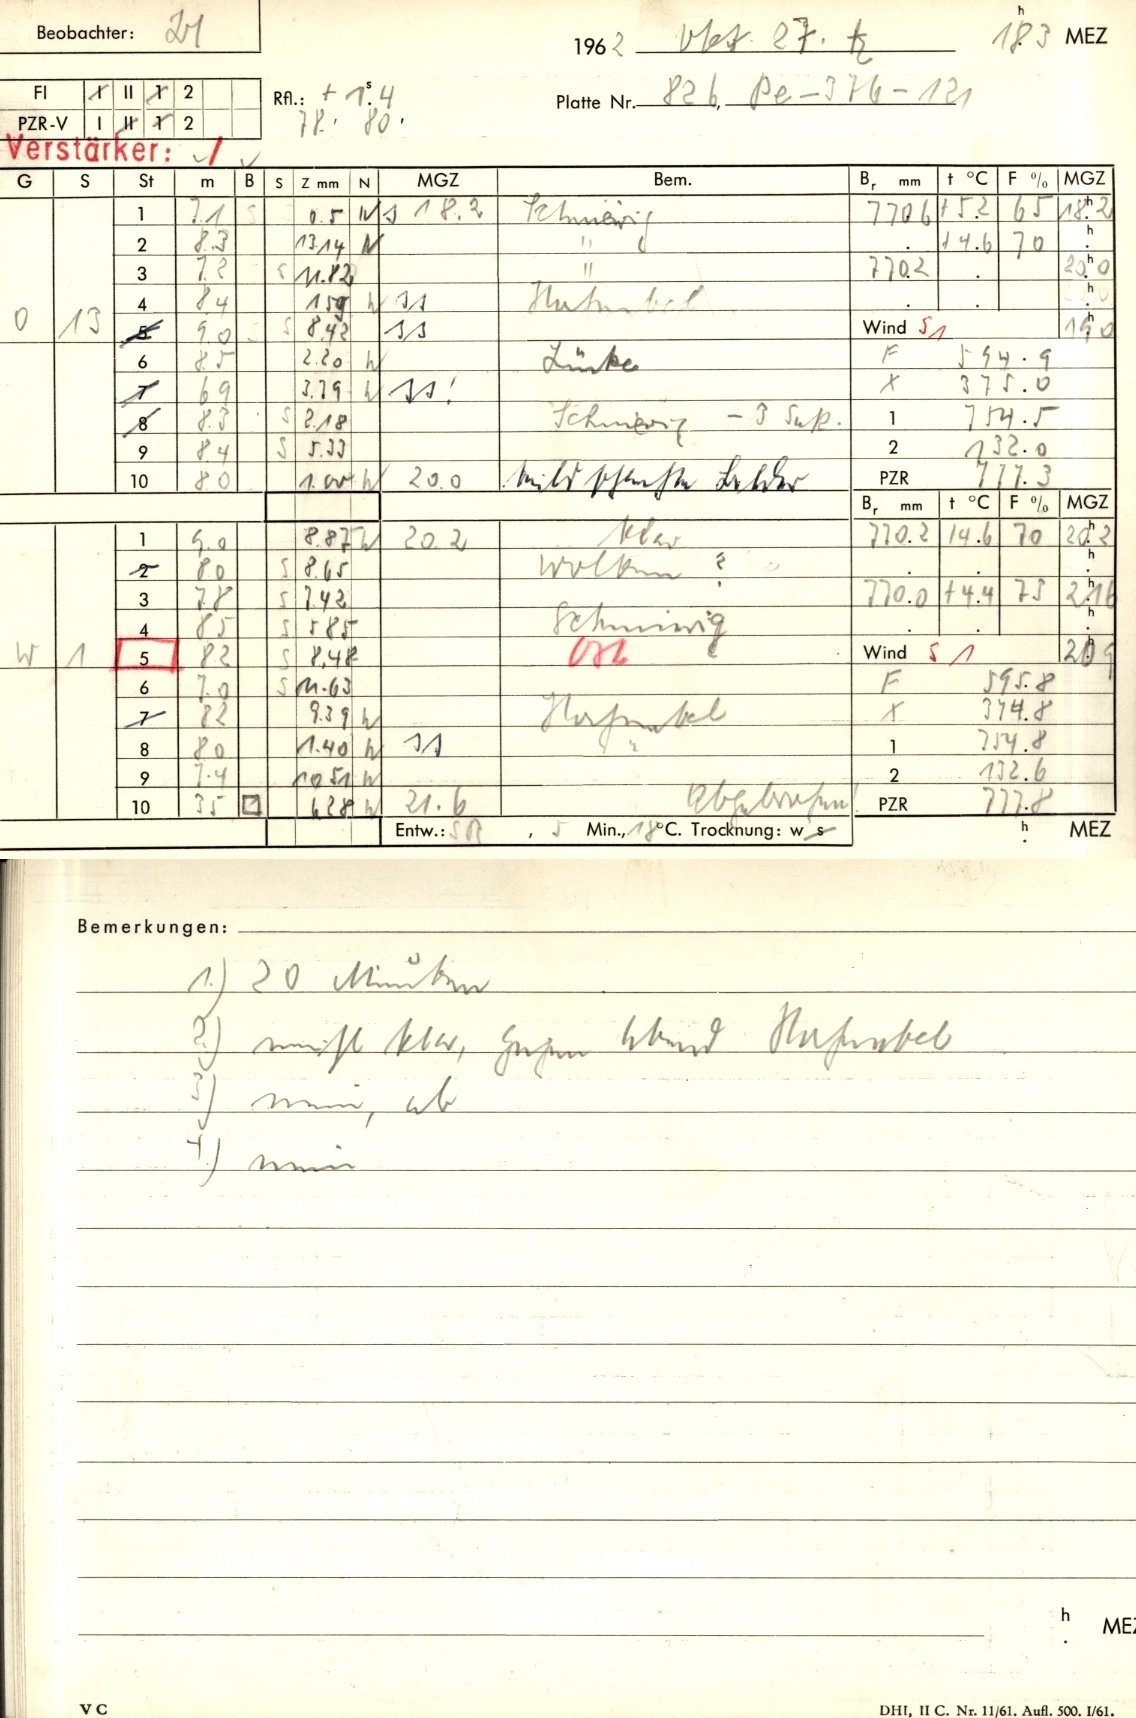 Beobachter: 21
1962 Okt. 27. 18.3 h MEZ
FI I II 1 2
Rfl.: + 1.4 s
Platte Nr. 826, Pe-376-121
PZR-V I II 1 2
78. 80.
Verstärker: 1
G S St m B S Z mm N MGZ Bem. Br mm t °C F % MGZ
1 7.1 S 0.5 N 18.2 Schmierig 770.6 +5.2 65 18.2 h
2 8.3 13.14 N " +4.6 70 h
3 7.2 S 11.82 " 770.2 20.0 h
4 8.4 1.59 W ss h
O 13 5 9.0 S S 8.42 ss Wind S1 19.0 h
6 8.5 2.20 W Lücke F 594.9
7 6.9 3.79 W ss! X 375.0
8 8.3 S 2.18 Schmierig - 3 Suk. 1 754.5
9 8.4 S 5.33 2 132.0
10 8.0 1.00 W 20.0 PZR 777.3
Br mm t °C F % MGZ
1 9.0 8.87 W 20.2 klar 770.2 +4.6 70 20.2 h
2 8.0 S 8.65 Wolken ? h
3 7.8 S 7.42 770.0 +4.4 75 21.6 h
4 8.5 S 5.85 Schmierig h
W 1 5 8.2 S 8.48 Wind S 1 20.9 h
6 7.0 S 11.63 F 595.8
7 8.2 9.39 W X 374.8
8 8.0 1.40 W ss " 1 754.8
9 7.4 10.51 W 2 132.6
10 3.5 6.28 W 21.6 Abgebrochen! PZR 777.8
Entw.: , 5 Min., 18 °C. Trocknung: w s h MEZ
Bemerkungen:
1.) 20 Minuten
2.) meist klar, gegen Abend
3) nein, ab
4.) nein
h MEZ
V C
DHI, II C. Nr. 11/61. Aufl. 500. I/61.